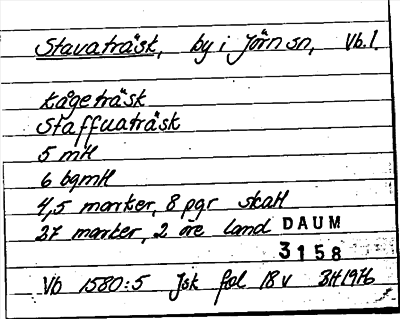 Stavaträsk, by i Jörn sn, Vb.l.
Kågeträsk
Staffuaträsk
5 mtl
6 bgmtl
4,5 marker, 8 pgr skatt
37 marker, 2 öre land
DAUM
3158
Vb 1580:5 Jsk fol 18 v BH 1976